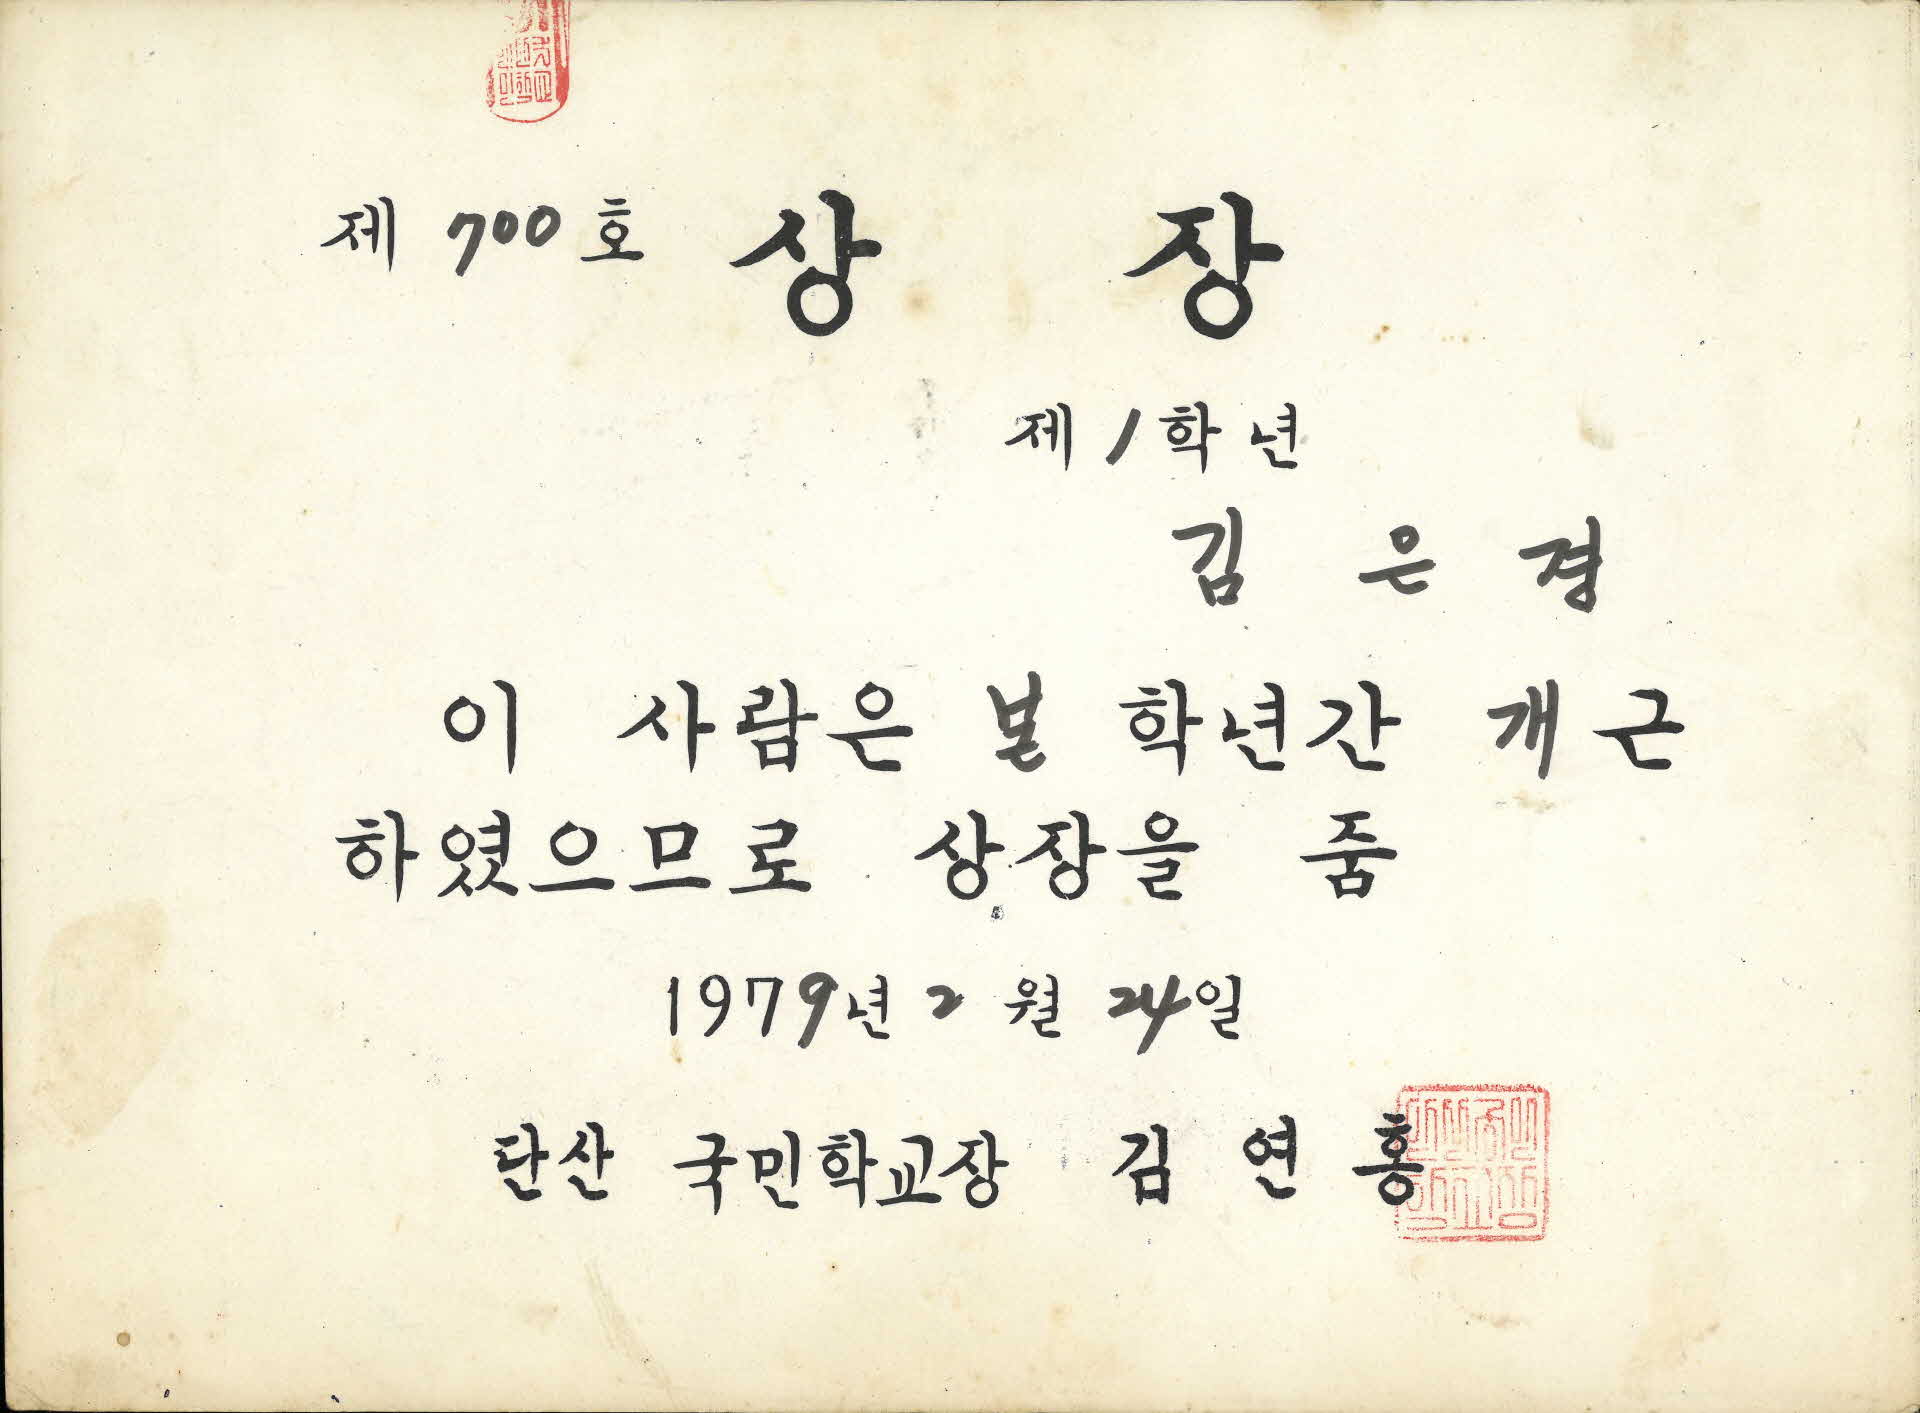 제 700 호 상 장
제 1 학년
김 은 경
이 사람은 본 학년간 개근
하였으므로 상장을 줌
1979년 2 월 24일
단산 국민학교장 김 연 홍